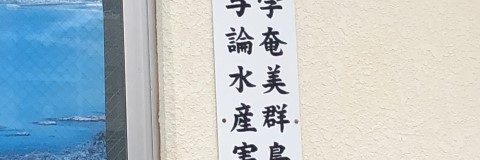 学奄美群島
与論水産実